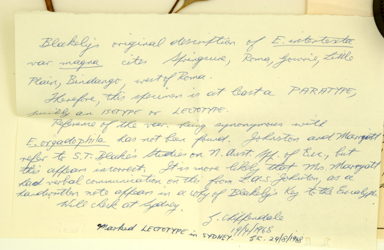 Blakely's original description of E. intertexta
var magna cites Springure, Roma, Gowrie, Little
Plain, Bindango, west of Roma.
Therefore, this specimen is at least a PARATYPE,
possibly an ISOTYPE or LECTOTYPE.
Reference of the var. being synonymous with
E. orgadophila has not been found. Johnston and Marryatt
refer to S.T. Blake's Studies on N. Aust. spp. of Euc., but
this appears incorrect. It is more likely that Mr Marryatt
had verbal communication on this from L.A.S. Johnston, as a
handwritten note appears in a copy of Blakely's Key to the Eucalypts.
Will check at Sydney.
G. Chippendale
19/4/1968
Marked LECTOTYPE in SYDNEY. GC. 29/5/1968